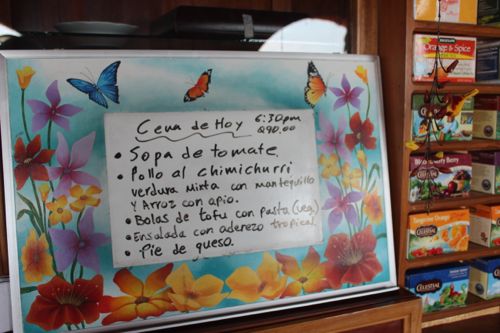 Cena de Hoy 6:30pm
Q90.00
• Sopa de tomate.
• Pollo al chimichurri
verdura Mixta con mantequilla
Y Arroz con apio.
• Bolas de tofu con pasta (veg)
• Ensalada con aderezo tropical
• Pie de queso.
Orange & Spice
Berry
Tangerine Orange
CELESTIAL
CELESTIAL